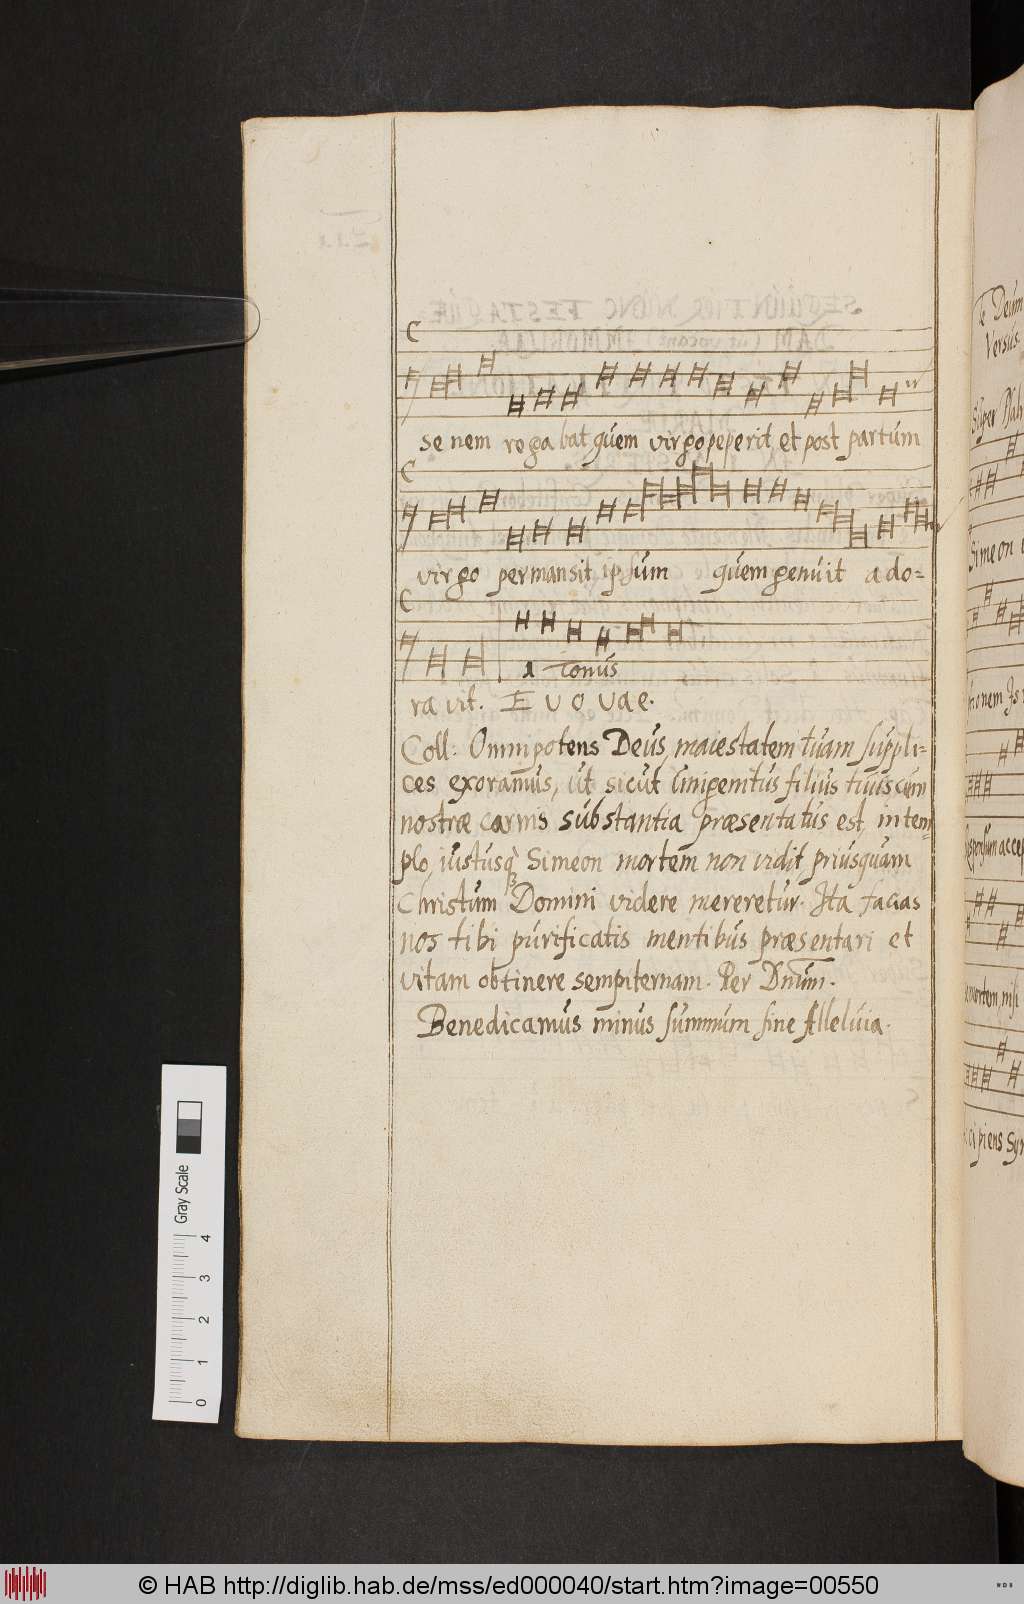 se nem rogabat quem virgo peperit et post partum
virgo permansit ipsum quem genuit ado=
1 Tonus
ravit. E u o u a e.
Coll: Omnipotens Deus, maiestatem tuam suppli=
ces exoramus, ut sicut Unigenitus filius tuus cum
nostræ carnis substantia præsentatus est, in tem=
plo, iustusq Simeon mortem non vidit priusquam
Christum Domini videre mereretur. Ita facias
nos tibi purificatis mentibus præsentari et
vitam obtinere sempiternam. Per Dnum.
Benedicamus minus summum sine Alleluia.
Te Deum
Versus
Super
Simeon
Responsum
mortem, nisi
Gray Scale
0 1 2 3 4
© HAB http://diglib.hab.de/mss/ed000040/start.htm?image=00550